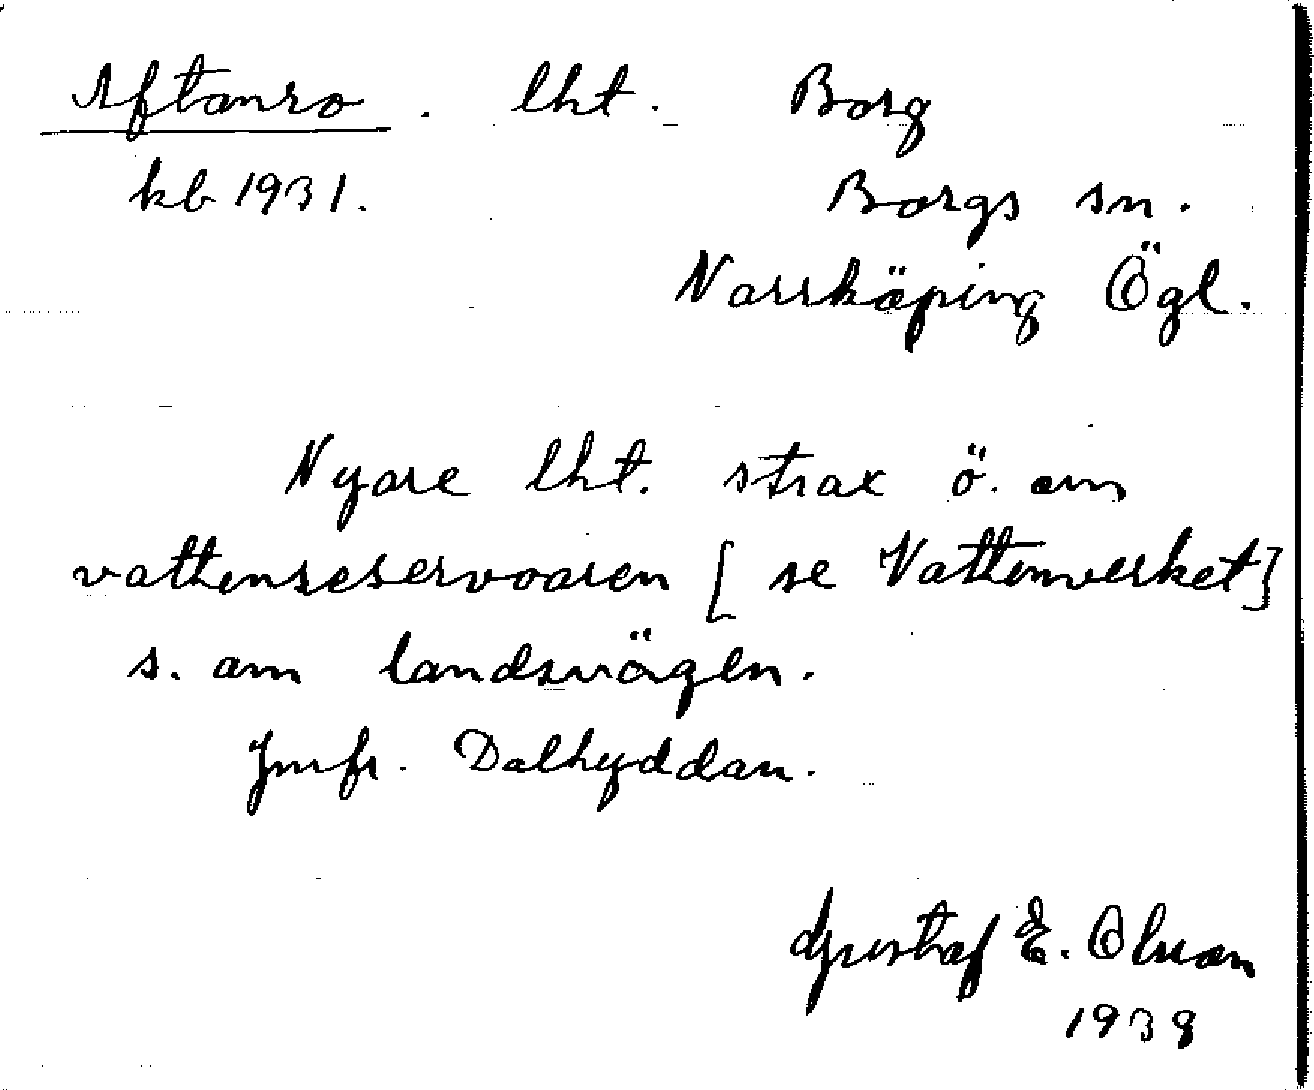 Aftonro. lht. Borg
kb 1931. Borgs sn.
Norrköping Ögl.
Nyare lht. strax ö. om
vattenreservoaren [se Vattenverket]
s. om landsvägen.
Jmfr. Dalhyddan.
Gustaf E. Olsson
1938